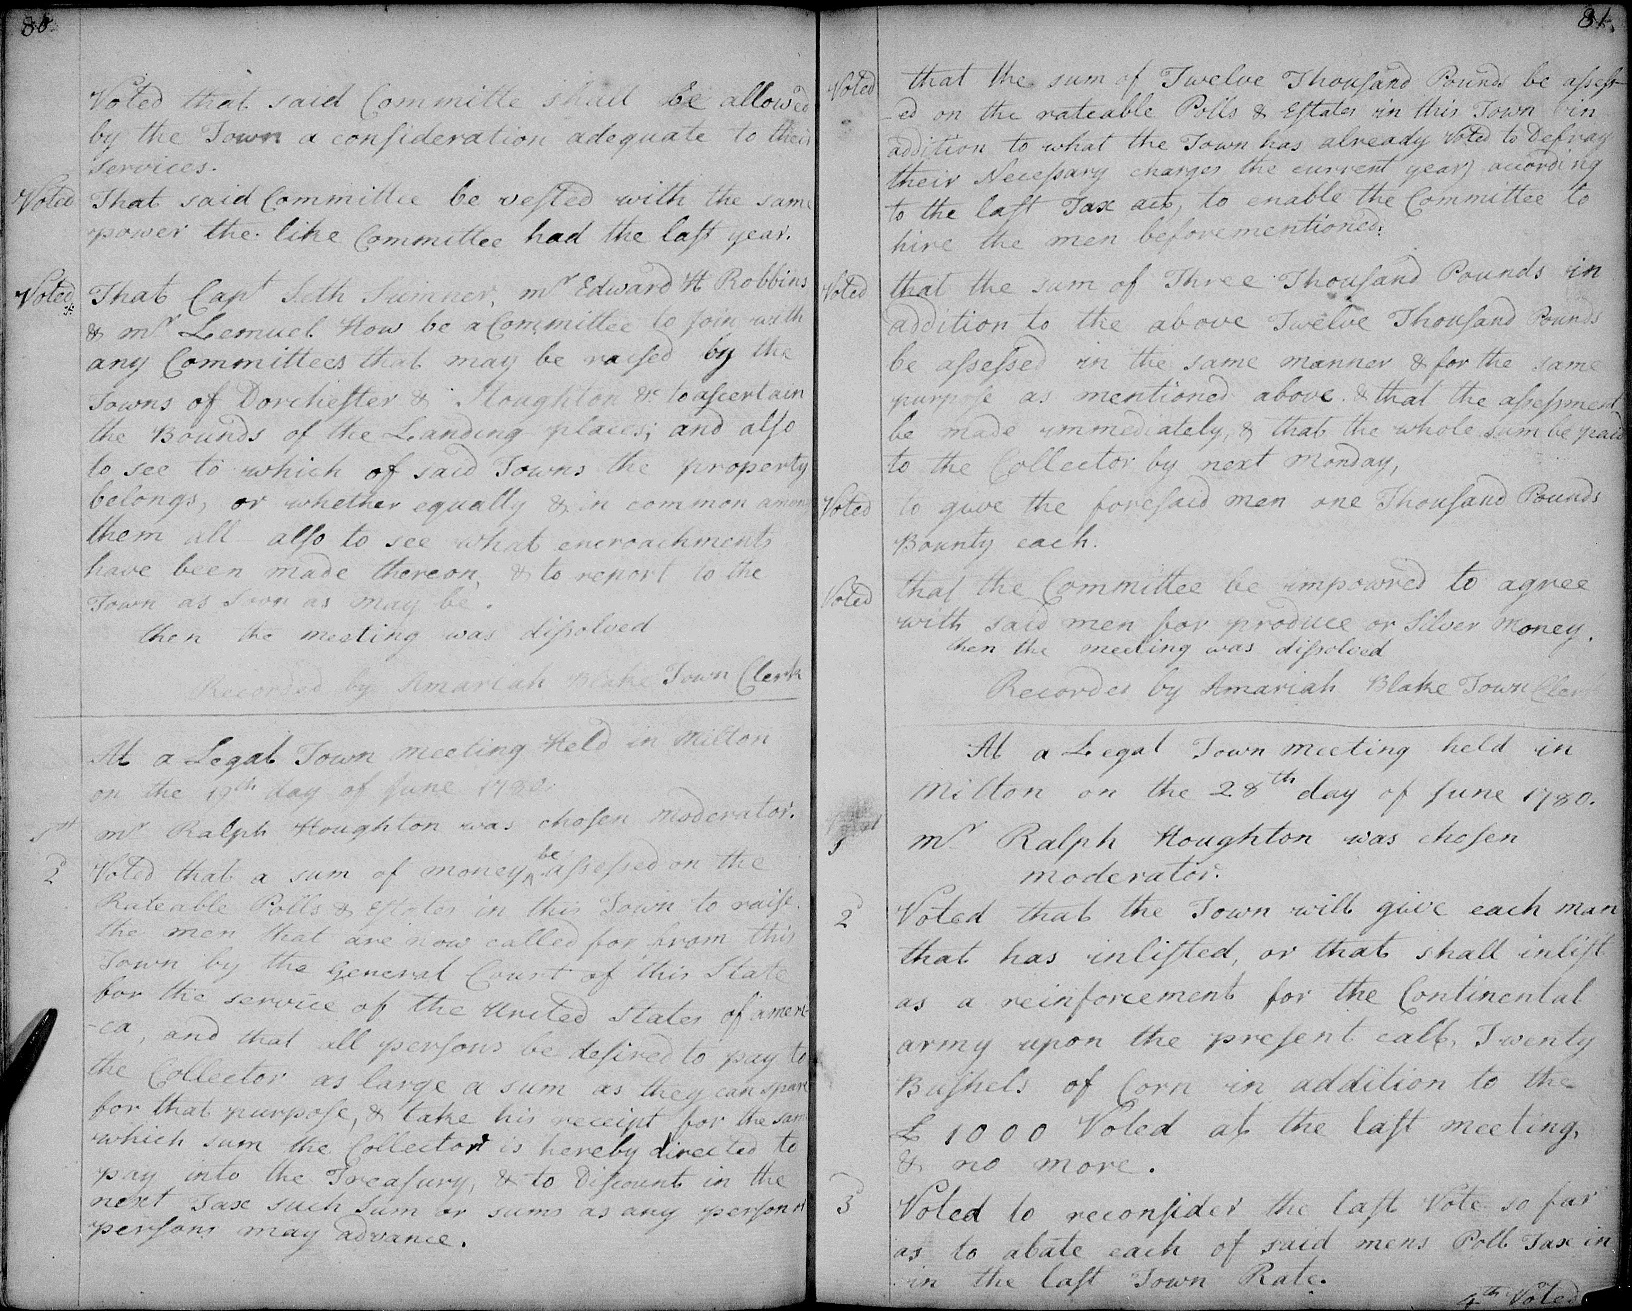 80.
Voted that said Committe shall be allowed
by the Town a consideration adequate to their
services.
Voted That said Committee be vested with the same
power the like Committee had the last year.
Voted That Capt Seth Sumner, mr Edward H Robbins
& mr Lemuel How be a Committee to join with
any Committees that may be raised by the
Towns of Dorchester & Stoughton &c to ascertain
the Bounds of the Landing places; and also
to see to which of said Towns the property
belongs, or whether equally & in common among
them all also to see what encroachments
have been made thereon, & to report to the
Town as soon as may be.
then the meeting was dissolved
Recorded by Amariah Blake Town Clerk
At a Legal Town meeting Held in Milton
on the 19th day of June 1780.
1st mr Ralph Houghton was chosen moderator.
2 Voted that a sum of money be assessed on the
Rateable Polls & Estates in this Town to raise
the men that are now called for from this
Town by the General Court of this State
for the service of the United States of Ameri
-ca, and that all persons be desired to pay to
the Collector as large a sum as they can spare
for that purpose, & take his receipt for the same
which sum the Collector is hereby directed to
pay into the Treasury, & to Discount in the
next Tax such sum or sums as any person or
persons may advance.
81.
Voted that the sum of Twelve Thousand Pounds be assess-
-ed on the rateable Polls & Estates in this Town (in
addition to what the Town has already Voted to Defray
their Necessary charges the current year) according
to the last Tax act, to enable the Committee to
hire the men beforementioned.
Voted that the sum of Three Thousand Pounds in
addition to the above Twelve Thousand Pounds
be assessed in the same manner & for the same
purpose as mentioned above. & that the assessment
be made immediately, & that the whole sum be paid
to the Collector by next Monday,
Voted to give the foresaid men one Thousand Pounds
Bounty each.
Voted that the Committee be impowred to agree
with said men for produce or Silver money.
then the meeting was dissolved
Recorded by Amariah Blake Town Clerk
At a Legal Town meeting held in
Milton on the 28th day of June 1780.
1 mr Ralph Houghton was chosen
moderator.
2d Voted that the Town will give each man
that has inlisted, or that shall inlist
as a reinforcement for the Continental
army upon the present call, Twenty
Bushels of Corn in addition to the
£ 1000 Voted at the last meeting,
& no more.
3d Voted to reconsider the last Vote so far
as to abate each of said mens Poll Tax in
in the last Town Rate.
4th Voted